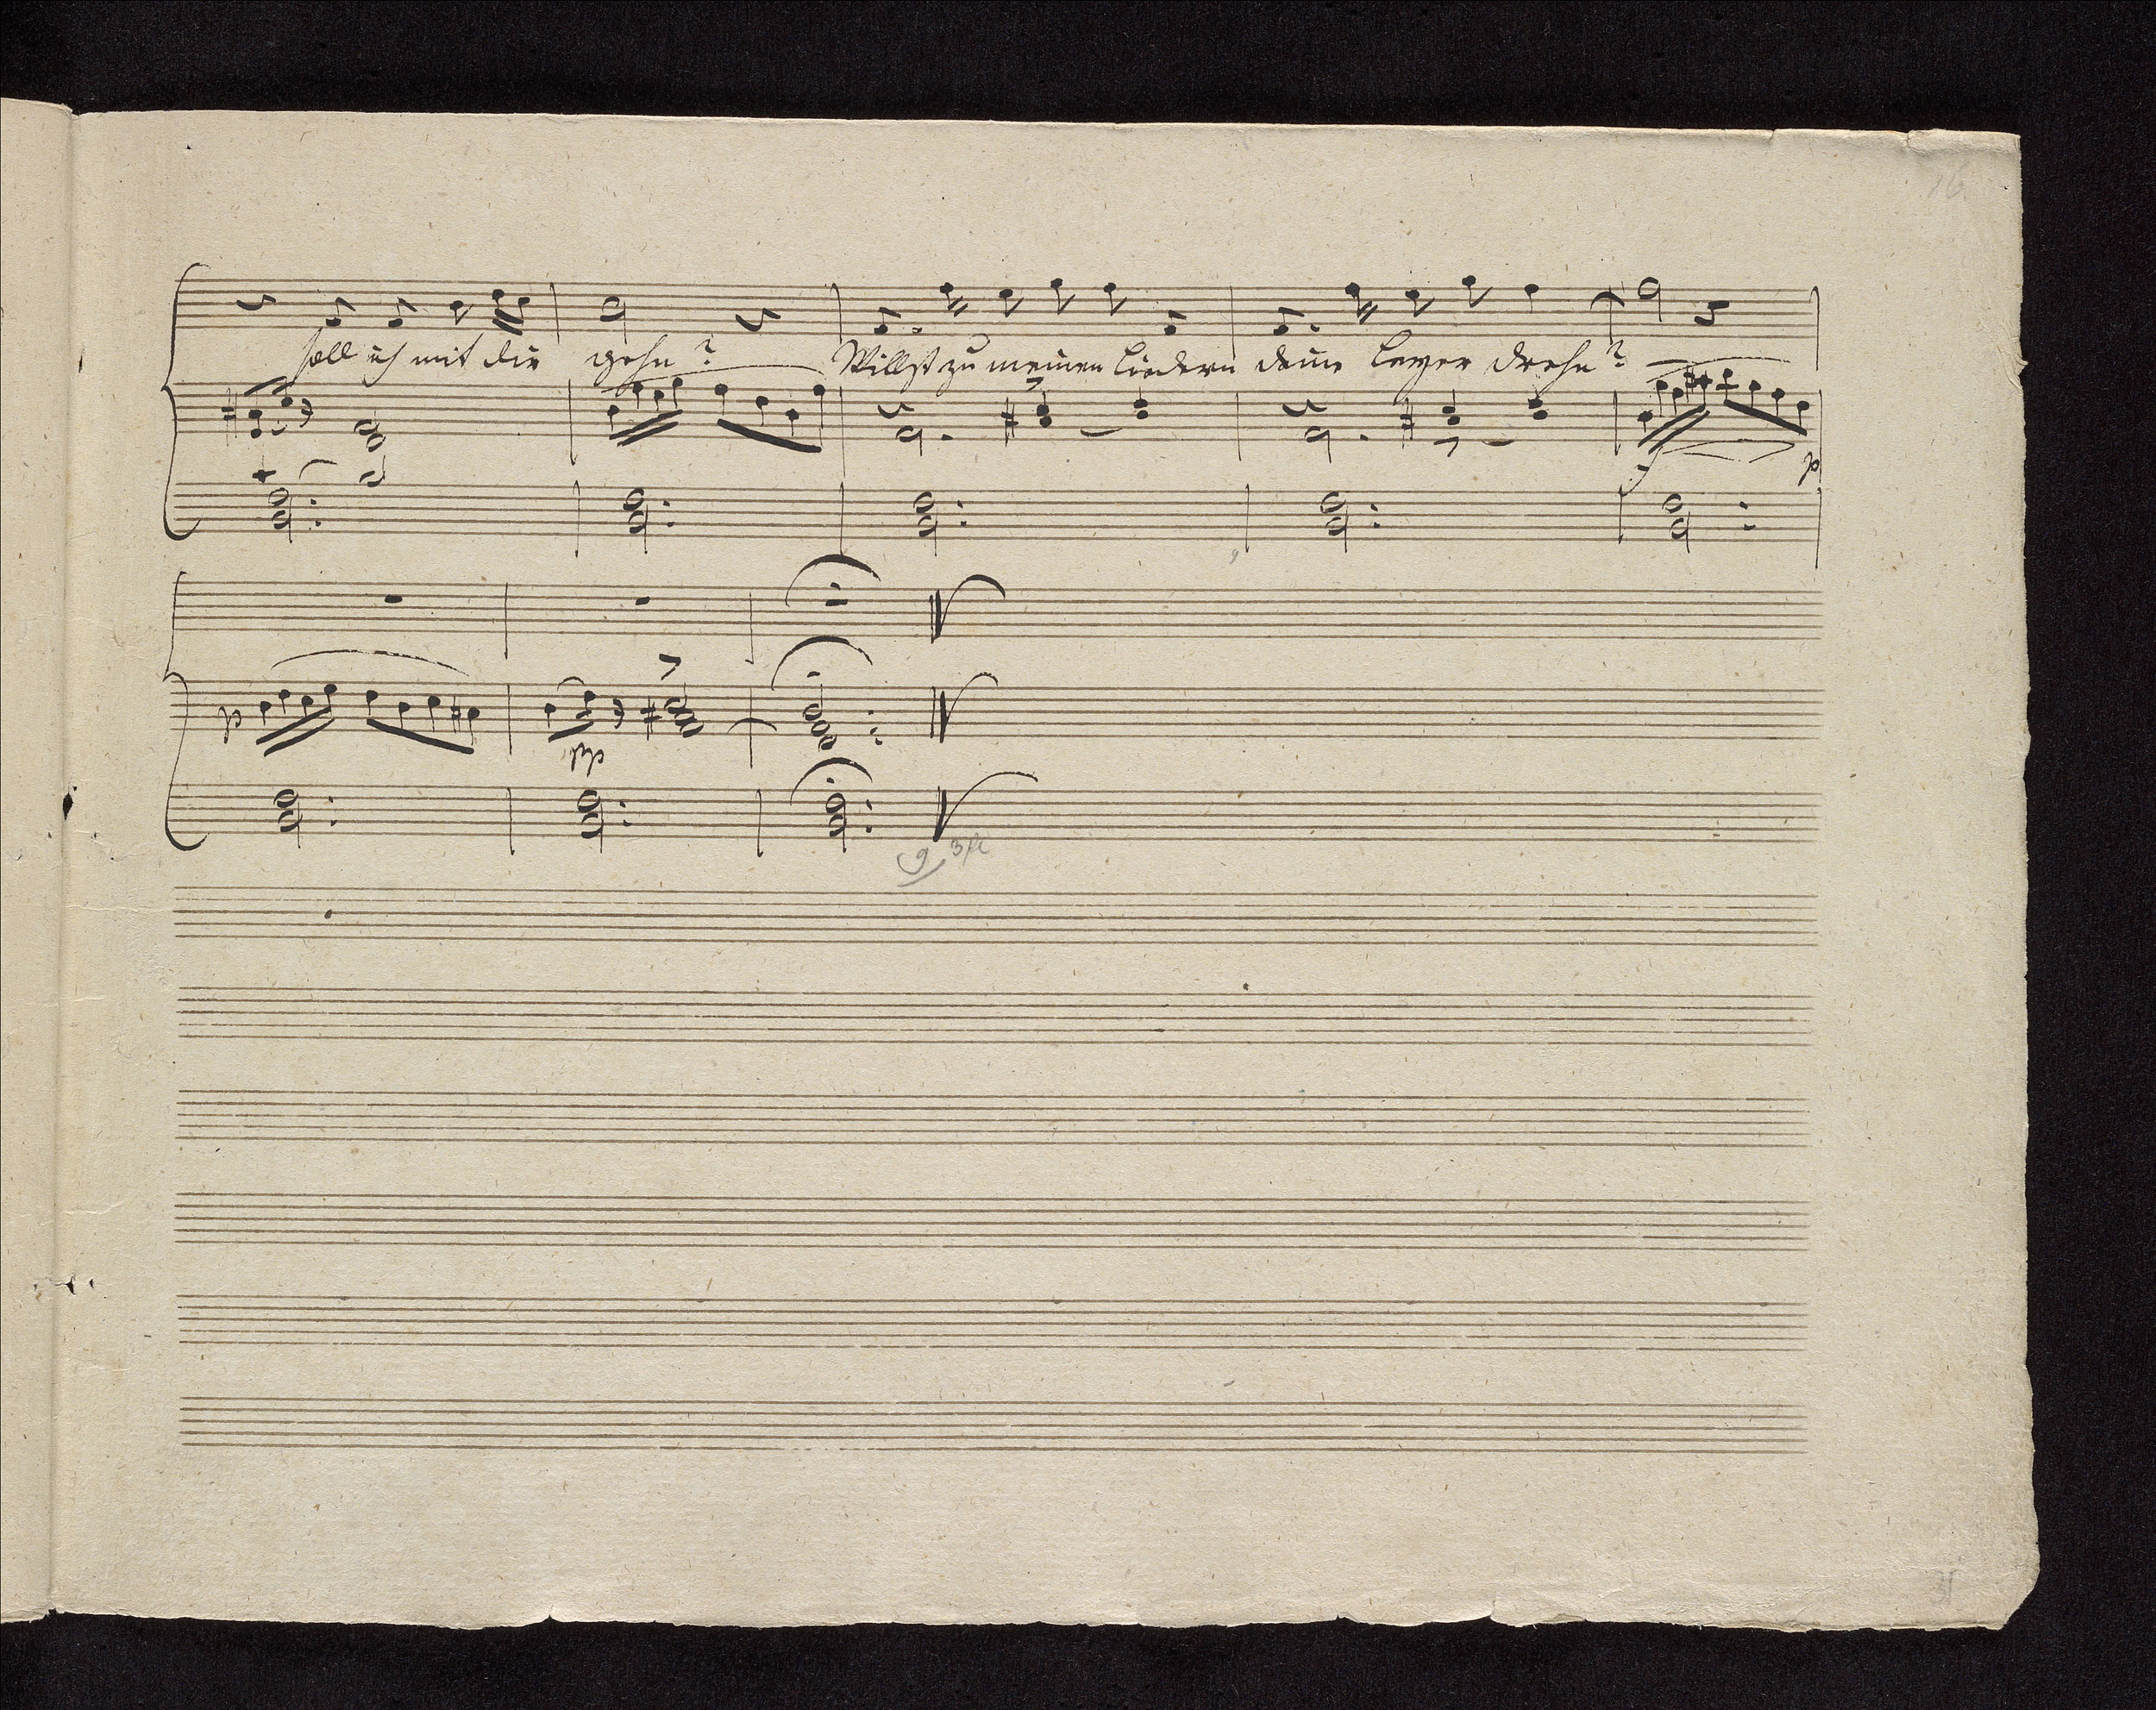 16
soll ich mit dir gehn? Willst zu meinen Liedern deine Leyer drehn?
f p
p
pp
31